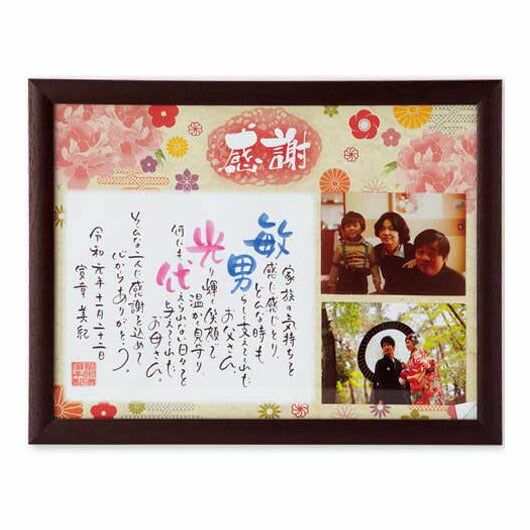 感謝
家族の気持ちを
敏感に感じとり
どんな時も
男らしく支えてくれた
お父さん。
光り輝く笑顔で
温かく見守り
何にも代えられない日々を
与えてくれた
お母さん。
そんな二人に感謝を込めて
心からありがとう。
令和元年十一月二十二日
美紀